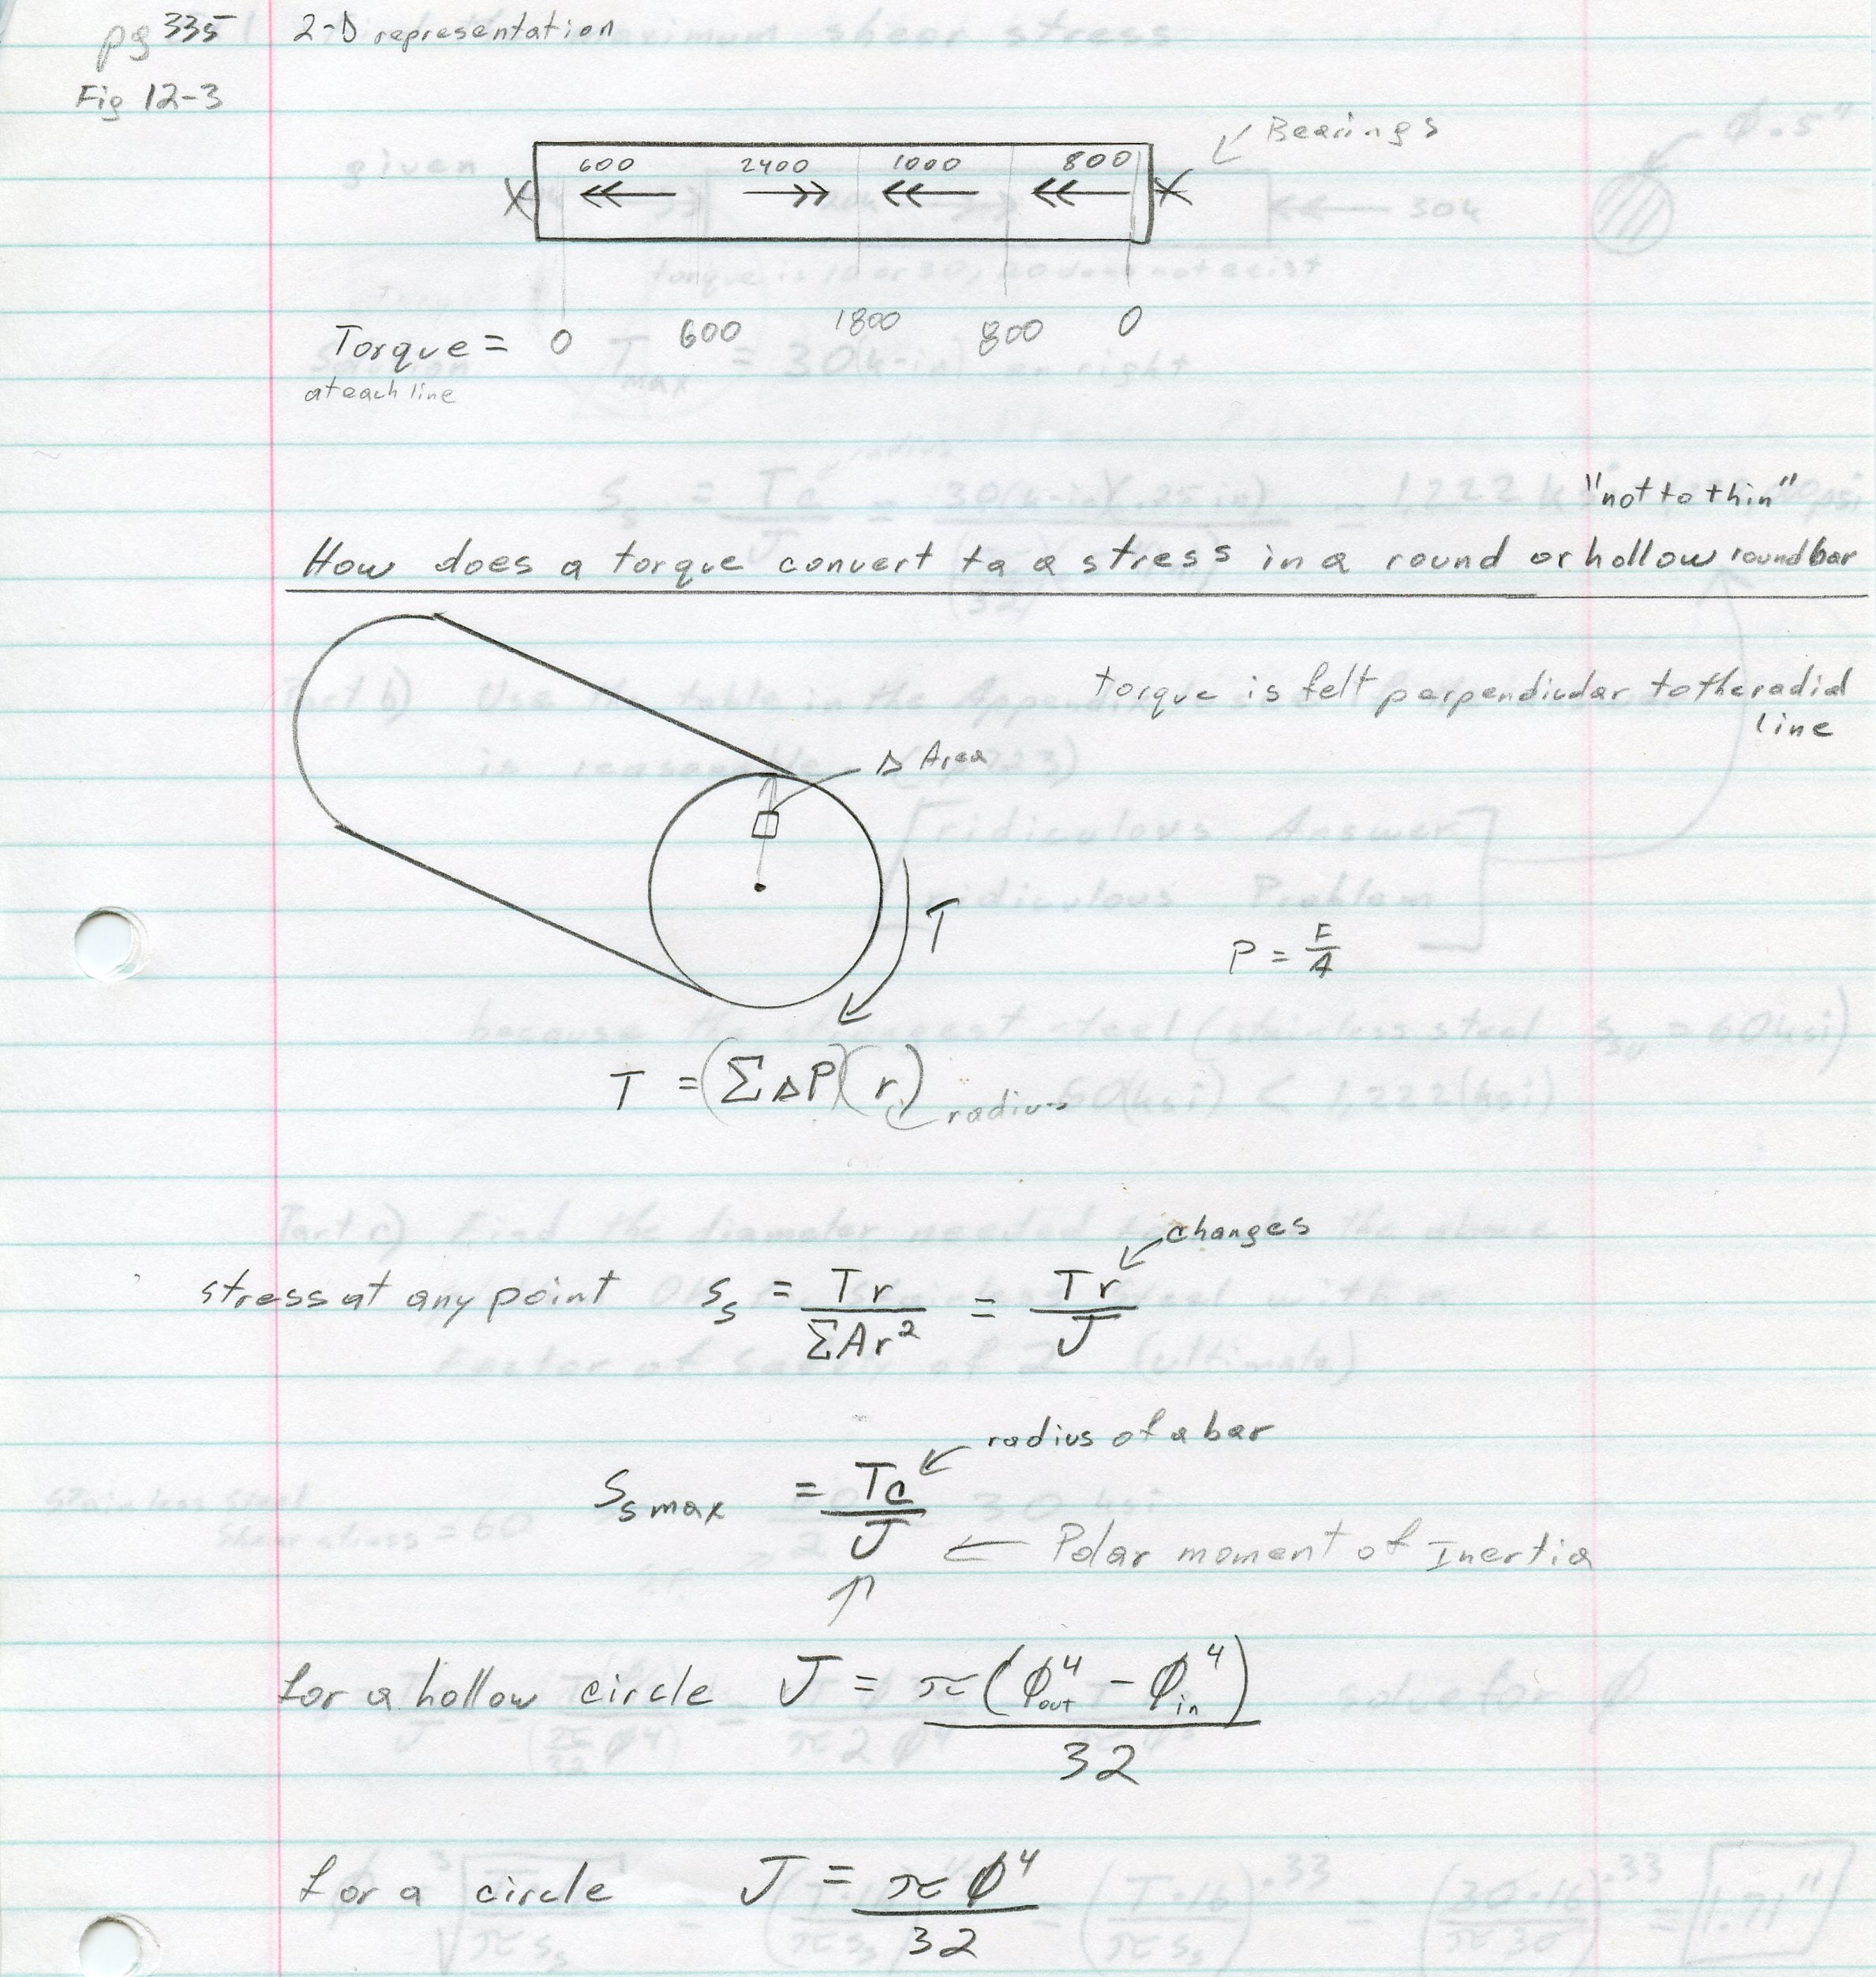 pg 335 2-D representation
Fig 12-3
Bearings
600 2400 1000 800
Torque = 0 600 1800 800 0
at each line
"not to thin"
How does a torque convert to a stress in a round or hollow round bar
torque is felt perpendicular to the radial
line
Δ Area
T
P = F/A
T = (ΣΔP)(r) radius
changes
stress at any point Ss = Tr/ΣAr² = Tr/J
radius of a bar
Ss max = Tc/J
Polar moment of Inertia
for a hollow circle J = π(φ⁴out - φ⁴in)/32
for a circle J = πφ⁴/32